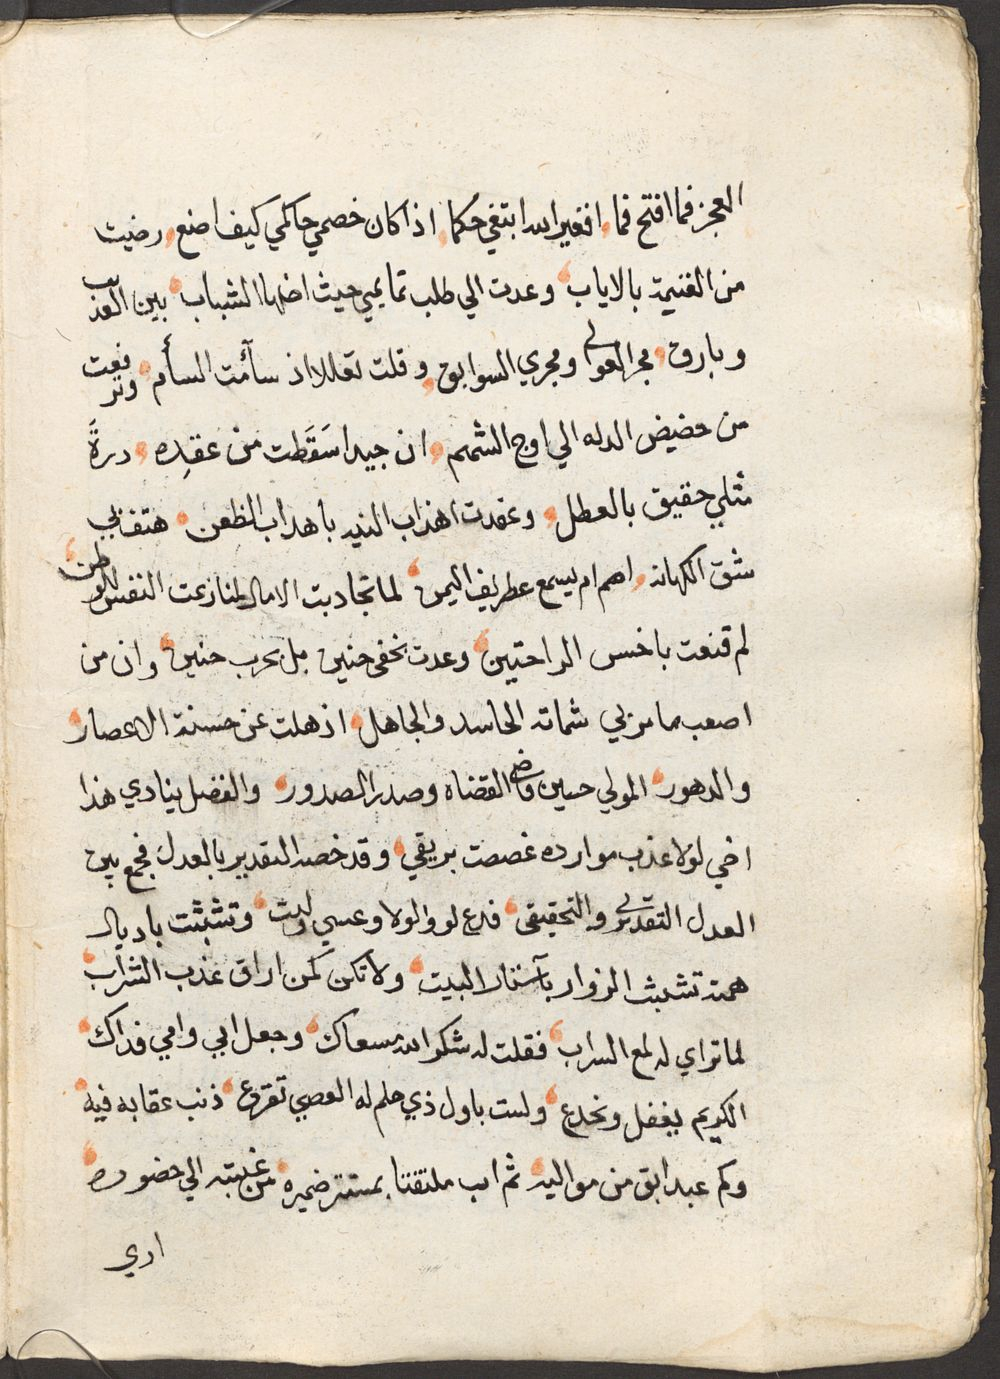 العجز فما افتح فما، افغير الله ابتغي حكما، اذا كان خصمي حاكمي كيف اصنع، رضيت
من الغنيمة بالاياب، وعدت الي طلب تمايمي حيث اضلها الشباب، بين العذيب
وبارق، مجر العوالي ومجري السوابق، وقلت تعللا اذ سآئمت السأم، وترفعت
من حضيض الدله الي اوج الشمم، ان جيدا سَقَطت من عقدِه، درةً
مثلي حقيق بالعطل، وعقدت اهداب البيد باهداب الظعن، هتف بي
شق الكهانه، اصم ام يسمع عطريف اليمن، لما تجادبت الامال لمنازعت النفس للوطن،
لم قنعت باخس الراحتين، وعدت بخفي حنين، بل بحرب حنين، وان من
اصعب مامر بي شماته الحاسد والجاهل، اذهلت عن حسنة الاعصار،
والدهور، المولي حسين قاضي القضاه وصدر الصدور، والفضل ينادي هذا
اخي لولا عذب موارده غصصت بريقي، وقد خصه التقدير بالعدل فجمع بين
العدل التقديري والتحقيقي، فدع لو ولولا وعسي وليت، وتشبثت باديال
همته تشبث الزوار بآستار البيت، ولا تكن كمن اراق عذب الشراب،
لما تراي له لمع السراب، فقلت له شكر الله مسعاك، وجعل ابي وامي فداك،
الكريم يغفل ونخدع، ولست باول ذي حلم له العصي تقرع، ذنب عقابه فيه،
وكم عبد ابق من مواليه، ثم اب ملتقتا بمستتر ضميره، من غيبته الي حضوره،
اري